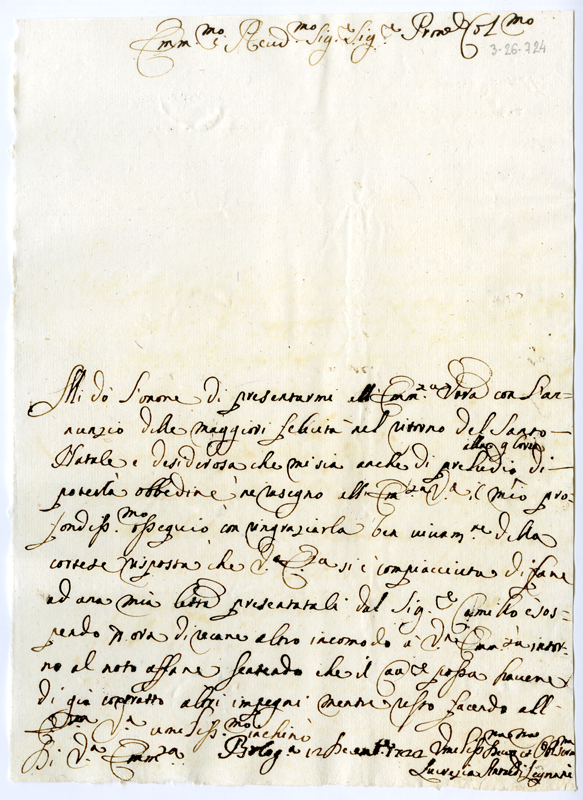 Emm.mo e Reud.mo Sig.re Sig.re Prone Col.mo
3-26-724
Mi dò l'onore di presentarmi all'Emm.za Vostra con l'an=
nunzio delle maggiori felicità nel ritorno del Santo
alla gloria
Natale e desiderosa che mi sia anche di preludio di
poterla obbedire ne rasegno all'Em.za V.a il mio pro=
fondiss.mo ossequio con ringraziarla ben vivam.te della
cortese risposta che V.a Em.za si è compiacciuta di fare
ad una mia lettera presentatali dal Sig.re Camillo e sos=
pendo p ora di recare altro incomodo à V.a Emm.za intor=
no al noto affare sentendo che il possa havere
di già contratto altri impegni mentre resto facendo all'
Emm.za V.a umiliss.mo inchino
Di V.a Emm.za Bologa 12 Decembre 1722
Lucrezia Legnani